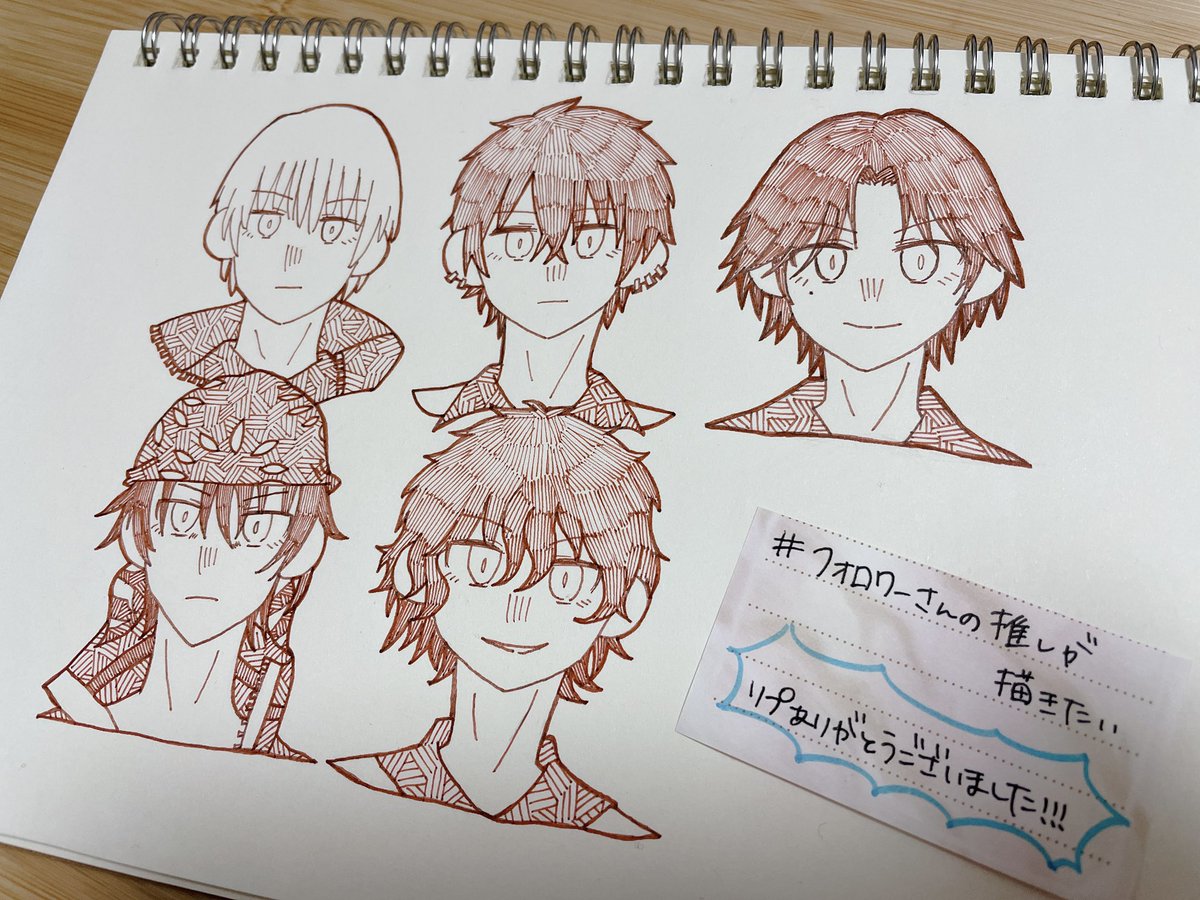 #フォロワーさんの推しが
描きたい
リプありがとうございました!!!